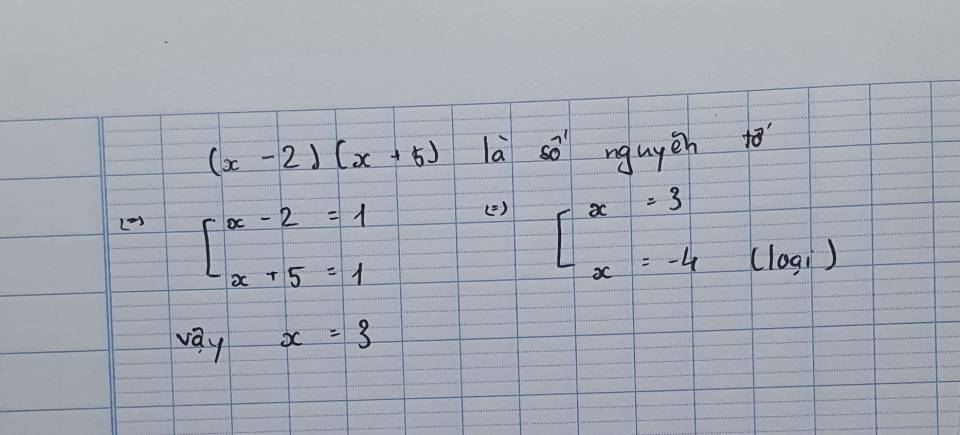 (x - 2) (x + 5) là số nguyên tố
(=) [ x - 2 = 1 (=) [ x = 3
x + 5 = 1 x = -4 (loại)
vậy x = 3